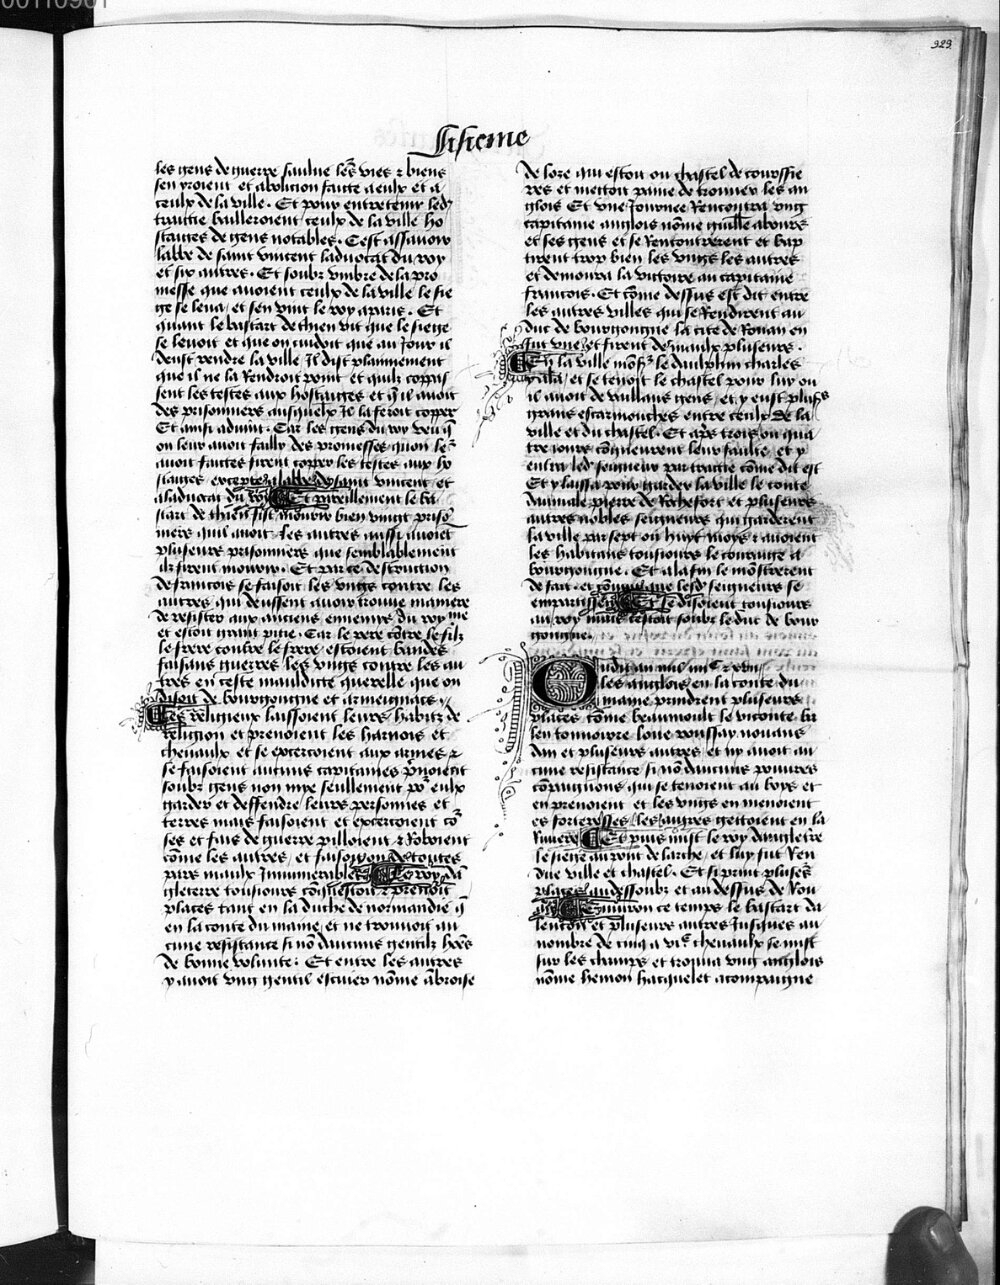 00110901
929
Sisieme
les gens de guerre saulue les vies et biens
sen yroient et abolicion faicte a eulx et a
ceulx de la ville. Et pour entretenir led
traictie bailleroient ceulx de la ville ho
staiges de gens notables. Cest assauoir
labbe de saint vincent laduocat du roy
et six autres. Et soubz vmbre de la pro
messe que auoient ceulx de la ville le sie
ge se leua et sen vint le roy a paris. Et
quant le bastart de thien vit que le siege
se leuoit et que on cuidoit que au jour il
deust rendre la ville Il dist plainement
que il ne la Rendroit point et quilz coppas
sent les testes aux hostaiges et q il auoit
des prisonniers ausquelx Il la feroit copper
Et ainsi aduint. Car les gens du roy veu q
on leur auoit failly des promesses quon le
auoit faictes firent copper les testes aux ho
staiges exceptez a labbe de saint vincent et
a laduocat du roy Et pareillement le ba
start de thien fist mourir bien vingt priso
niers quil auoit. les autres aussi auoiet
plusieurs prisonniers que semblablement
ilz firent mourir. Et par ce destruction
de francois se faisoit les vngs contre les
autres qui deussent auoir trouue maniere
de resister aux anciens ennemys du royme
et estoit grant pitie. Car le pere cotre le filz
le frere contre le frere estoient bandes
faisans guerres les vngs contre les au
tres en ceste mauldicte querelle que on
disoit de bourgongne et armeignacs.
Les religieux laissoient leurs habitz de
religion et prenoient les harnois et
cheuaulx et se excercoient aux armes et
se faisoient aucuns capitaines prenoient
soubz gens non mye seullement po eulx
garder et deffendre leurs personnes et
terres mais faisoient et excercoient co
ses et fais de guerre pilloient et Roboient
come les autres et faisoit on de toutes
pars maulx Innumerables Le roy dan
gleterre tousiours conquestoit et prenoit
places tant en la duche de normandie q
en la conte du maine et ne trouuoit au
cune resistance si no daucuns gentilz hoes
de bonne volunte. Et entre les autres
y auoit vng gentil escuier nome abroise
de lore qui estoit ou chastel de courssie
res et mettoit paine de trouuer les an
glois Et vne Journee Rencontra vng
capitaine anglois nome guille
et ses gens et se Rentontrerent et bap
tirent trop bien les vngs les autres
et demoura la victoire au capitaine
francois. Et come dessus est dit entre
les autres villes qui se Rendirent au
duc de bourgongne la cite de Rouan en
fut vne et firent de maulx plusieurs.
En la ville mons le daulphin charles
y ala et se tenoit le chastel pour luy ou
il auoit de vaillans gens et y eust plus
grans escarmouches entre ceulx de la
ville et du chastel. Et apres trois ou qua
tre jours congneurent leur faulte et y
entra led seigneur par traictie come dit est
Et y laissa pour garder la ville le conte
daumale pierre de Rochefort et plusieurs
autres nobles seigneurs qui garderent
la ville par sept ou huyt moys et auoient
les habitans tousiours le couraige a
bourgongne. Et a la fin le monstrerent
de fait et conuint que lesd seigneurs se
en partissent Et se disoient tousiours
au roy mais cestoit soubz le duc de bour
gongne.
Oudit an mil iiii c et xvii
les anglois en la conte du
maine prindrent plusieurs
places come beaumoult le viconte ba
len tonnoirre loue roussay nouans
dan et plusieurs autres et ny auoit au
cune resistance si no daucuns pouures
compaignons qui se tenoient au boys et
en prenoient et les vngs en menoient
es forteresses les autres gettoient en la
Riuiere Et puis mist le roy dangletere
le siege au pont de larche et luy fut Ren
due ville et chastel. Et si print pluse
places au dessoubz et au dessus de Rou
an Enuiron ce temps le bastart da
lencon et plusieurs autres Jusques au
nombre de cinq a vi cheuaulx se mist
sur les champs et trouua vng anglois
nome hemon hacquelet acompaigne